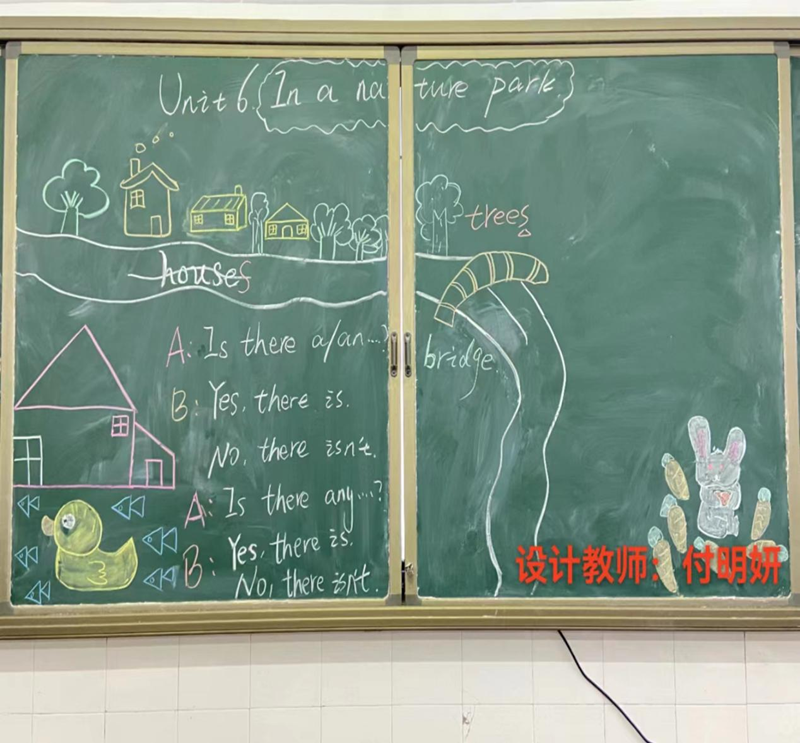 Unit 6. In a nature park.
trees
houses
A: Is there a/an...?
bridge
B: Yes, there is.
No, there isn't.
A: Is there any...?
B: Yes, there is.
No, there isn't.
设计教师：付明妍